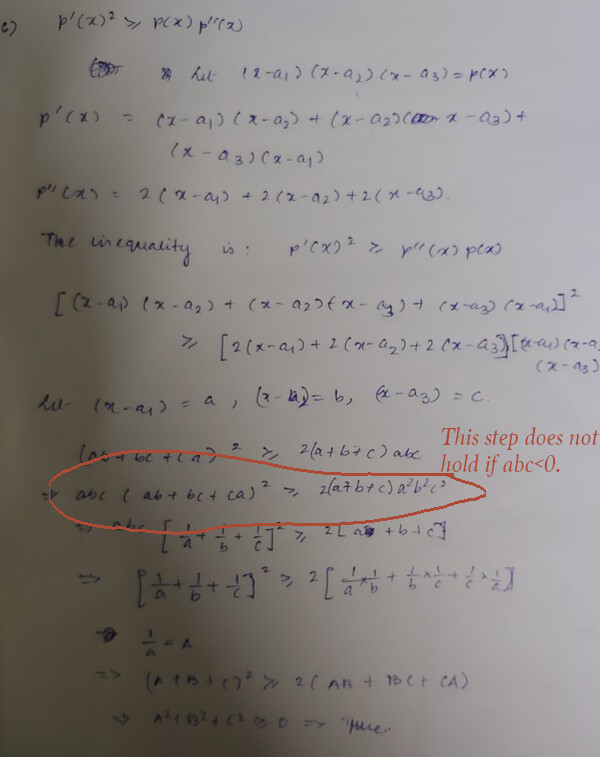 c) p'(x)² ⩾ p(x) p''(x)
Let (x-a₁) (x-a₂) (x-a₃) = p(x)
p'(x) = (x-a₁) (x-a₂) + (x-a₂)( x-a₃) +
(x-a₃)(x-a₁)
p''(x) = 2(x-a₁) + 2(x-a₂) + 2(x-a₃).
The inequality is : p'(x)² ⩾ p''(x) p(x)
[(x-a₁) (x-a₂) + (x-a₂)(x-a₃) + (x-a₃) (x-a₁)]²
⩾ [2(x-a₁) + 2(x-a₂) + 2(x-a₃)] [(x-a₁)(x-a
(x-a₃)
Let (x-a₁) = a , (x-a₂) = b, (x-a₃) = c.
(ab + bc + ca)² ⩾ 2(a+b+c) abc
This step does not
hold if abc<0.
⇒ abc (ab + bc + ca)² ⩾ 2(a+b+c) a²b²c²
⇒ abc [1/a + 1/b + 1/c]² ⩾ 2[a + b + c]
⇒ [1/a + 1/b + 1/c]² ⩾ 2[1/a × 1/b + 1/b × 1/c + 1/c × 1/a]
1/a = A
⇒ (A + B + C)² ⩾ 2(AB + BC + CA)
⇒ A² + B² + C² ⩾ 0 ⇒ True.